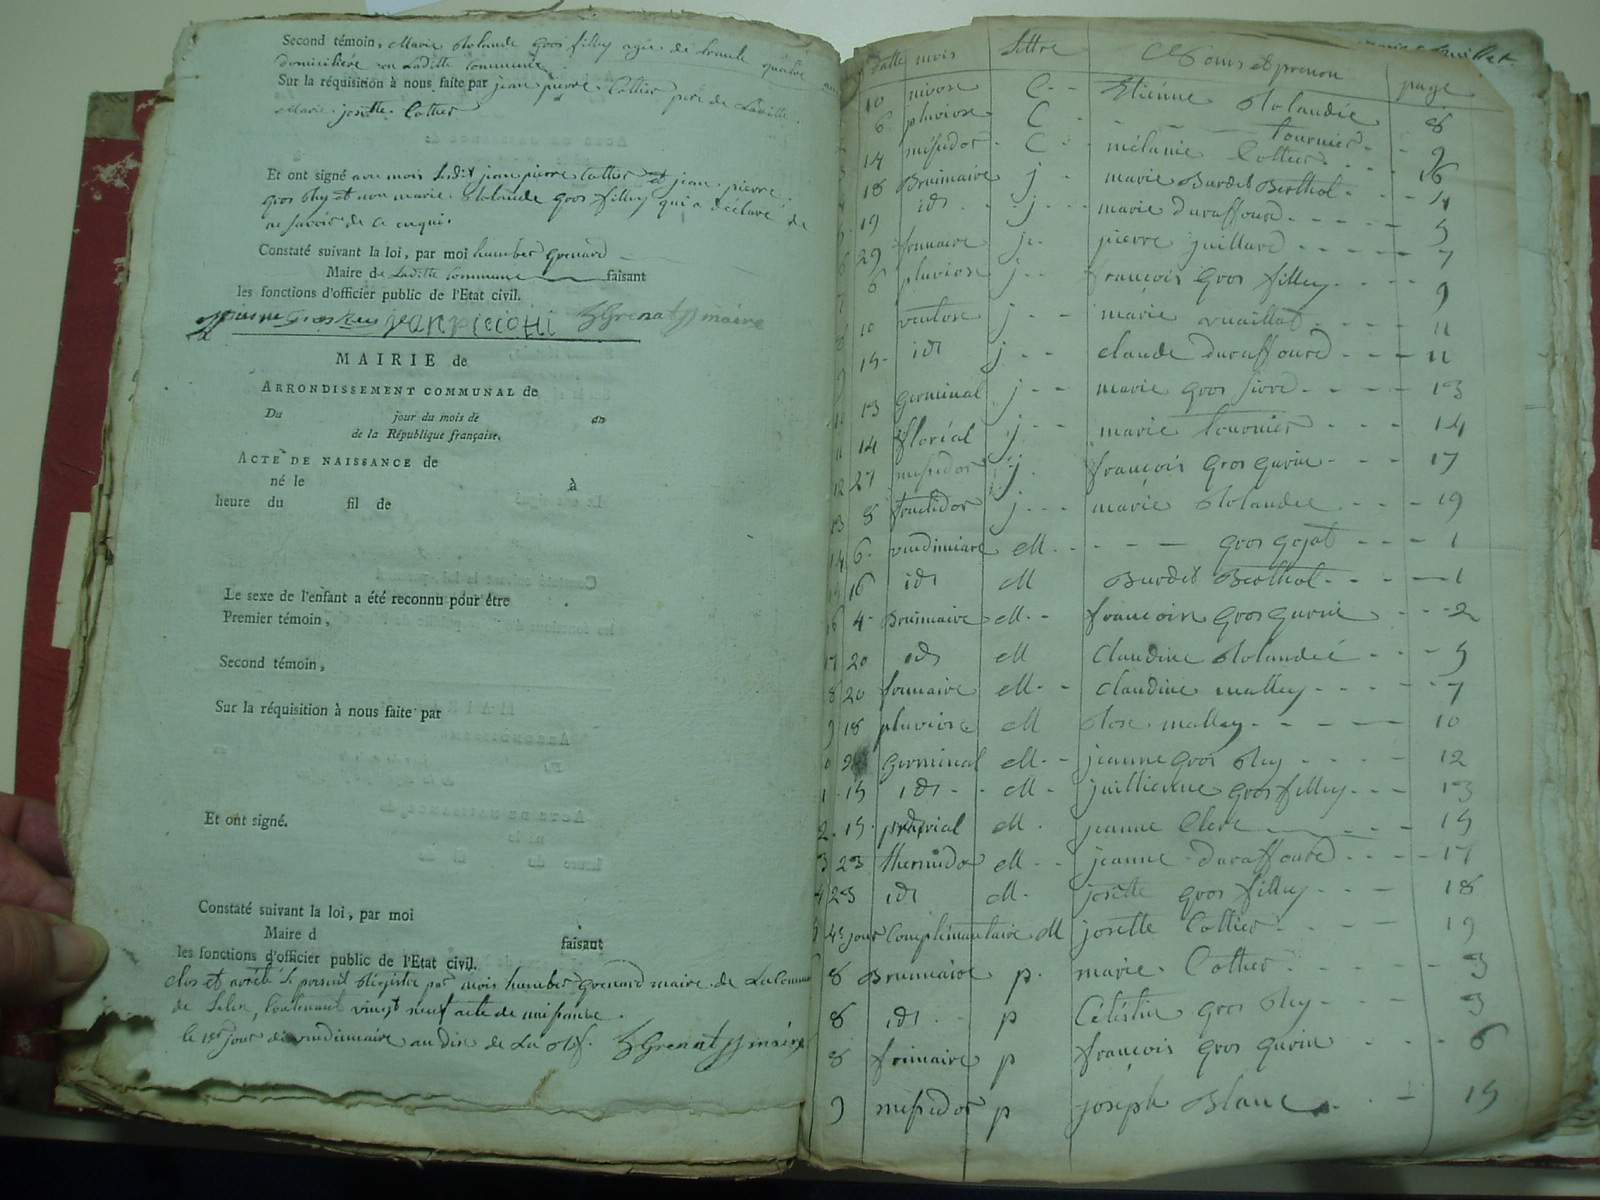 Second témoin, Marie Rolande gros filley agée de trente quatre
domiciliée en Laditte Commune
Sur la réquisition à nous faite par jean pierre Cottier pere de Laditte
Marie josette Cottier
Et ont signé avec mois Ledit jean pierre Cottier et jean pierre
gros et non marie Rolande gros filley qui a déclaré de
ne savoir de ce enqui
Constaté suivant la loi, par moi humber Grenard
Maire de Laditte Commune faisant
les fonctions d'officier public de l'Etat civil.
maire
MAIRIE de
ARRONDISSEMENT COMMUNAL de
Du jour du mois de an
de la République française.
ACTE DE NAISSANCE de
né le à
heure du fil de
Le sexe de l'enfant a été reconnu pour être
Premier témoin,
Second témoin,
Sur la réquisition à nous faite par
Et ont signé.
Constaté suivant la loi, par moi
Maire d faisant
les fonctions d'officier public de l'Etat civil.
clos et arrété Le présent Régistre par mois humber Grenard maire de La Commune
de Contenant vingt neuf acte de naissance
le 1er jour de vendimiaire an dix de La maire
datte mois lettre Noms et prenon page
10 nivose C Etienne Rolandée 8
6 pluviose C tournier 9
14 mésidor C mélanie Cottier 16
18 Brumaire j marie Burdet Berthol 4
19 idt j marie duraffourd 5
29 frimaire j pierre juillard 7
6 pluviose j françois gros filley 9
10 ventose j marie vuaillat 11
15 idt j claude duraffourd 11
13 germinal j marie gros 13
14 floréal j marie tournier 14
27 mesidor j françois gros gurin 17
8 fructidor j marie Rolandee 19
6 vendimiare M gros gojat 1
16 idt M Burdet Berthol 1
4 Brumaire M françois gros gurin 2
20 idt M Claudine Rolandée 5
20 frimaire M Claudine malley 7
18 pluviose M Rose malley 10
germinal M jeanne gros 12
15 idt M juillienne gros filley 13
15 prérial M jeanne Clerc 15
23 thermidor M jeanne duraffourd 17
23 idt M josette gros filley 18
4e jour Complémantaire M josette Cottier 19
8 Brumaire p marie Cottier 3
8 idt p Celéstin gros 3
8 frimaire p françois gros gurin 6
9 mesidor p joseph Blanc 15